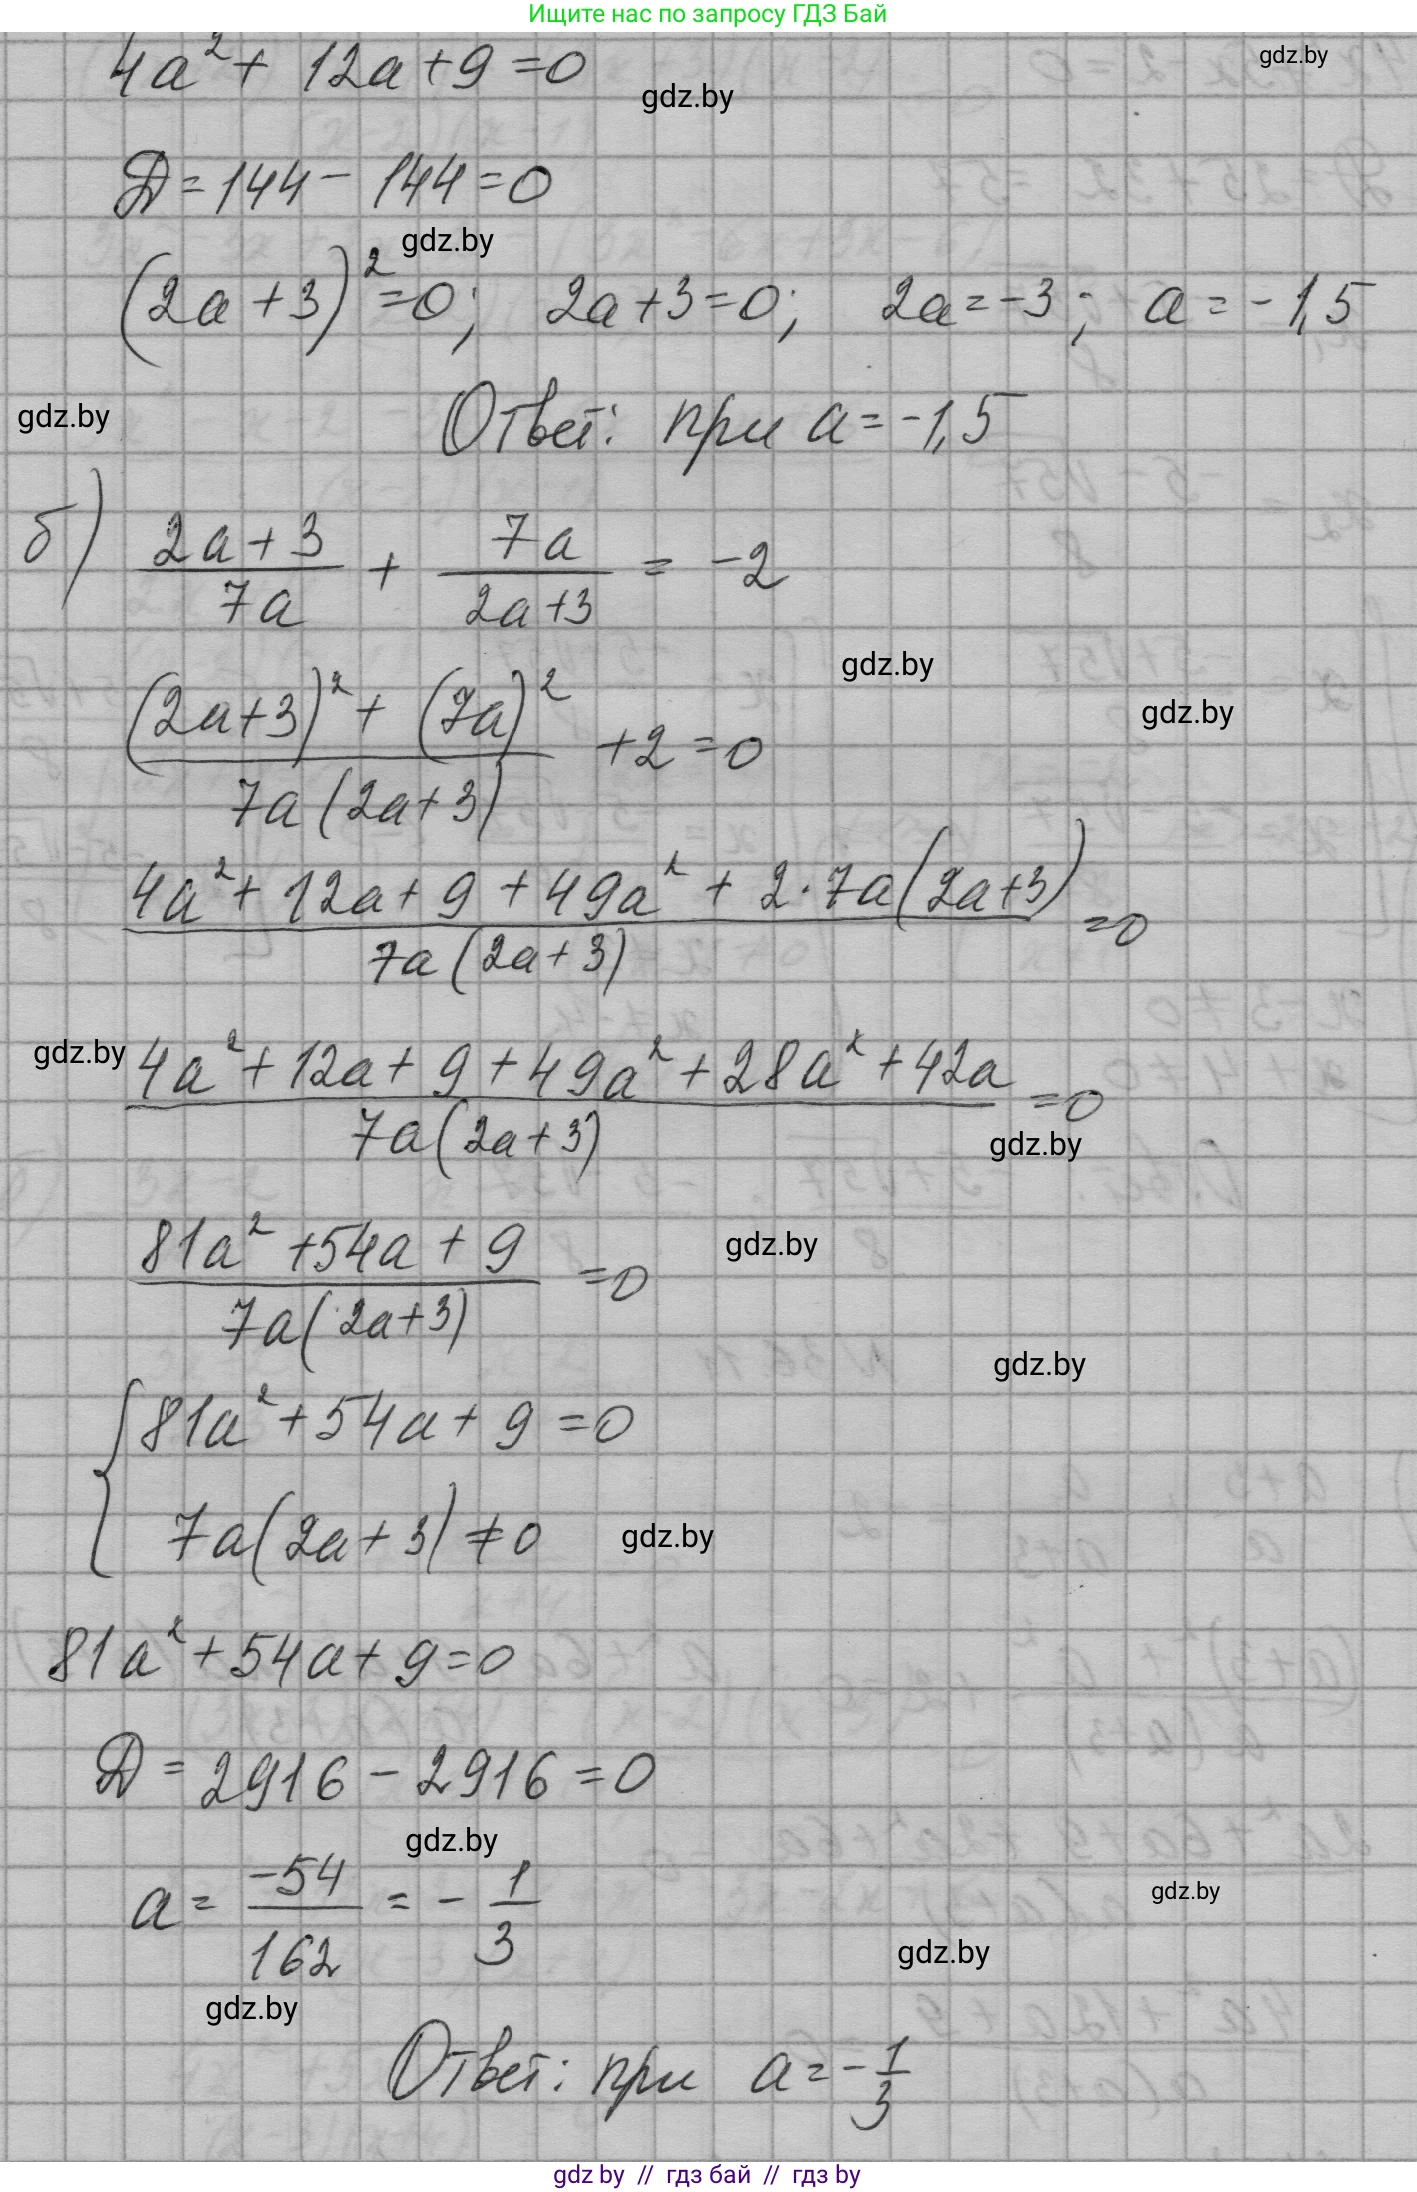 Ищите нас по запросу ГДЗ Бай
4a² + 12a + 9 = 0
gdz.by
gdz.by
Д = 144 - 144 = 0
gdz.by
(2a + 3)² = 0; 2a + 3 = 0; 2a = -3; a = -1,5
gdz.by
Ответ: при a = -1,5
б) (2a + 3)/(7a) + (7a)/(2a + 3) = -2
gdz.by
gdz.by
((2a + 3)² + (7a)²)/(7a(2a + 3)) + 2 = 0
(4a² + 12a + 9 + 49a² + 2·7a(2a + 3))/(7a(2a + 3)) = 0
gdz.by
(4a² + 12a + 9 + 49a² + 28a² + 42a)/(7a(2a + 3)) = 0
gdz.by
(81a² + 54a + 9)/(7a(2a + 3)) = 0
gdz.by
gdz.by
{ 81a² + 54a + 9 = 0
7a(2a + 3) ≠ 0
gdz.by
81a² + 54a + 9 = 0
Д = 2916 - 2916 = 0
gdz.by
a = -54/162 = - 1/3
gdz.by
gdz.by
gdz.by
Ответ: при a = - 1/3
gdz by // гдз бай // гдз by